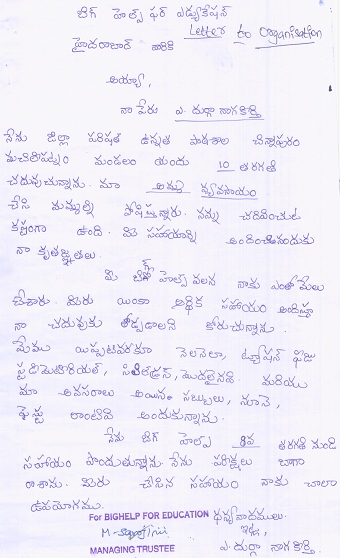 బిగ్ హెల్ప్ ఫర్ ఎడ్యుకేషన్
Letter to Organisation
హైదరాబాద్ వారికి
అయ్యా,
నా పేరు ఎ. దుర్గా నాగకీర్తి
నేను జిల్లా పరిషత్ ఉన్నత పాఠశాల చిన్నాపురం
మచిలీపట్నం మండలం యందు 10 తరగతి
చదువుచున్నాను. మా అమ్మ వ్యవసాయం
చేసి మమ్మల్ని పోషిస్తున్నారు. నన్ను చదివించుట
కష్టంగా ఉంది. మీ సహాయాన్ని అందించినందుకు
నా కృతజ్ఞతలు.
మీ బిగ్ హెల్ప్ వలన నాకు ఎంతో మేలు
చేశారు. మీరు యింకా ఆర్థిక సహాయం అందిస్తూ
నా చదువుకు తోడ్పడాలని కోరుచున్నాను.
మేము యిప్పటివరకూ నెలనెలా, ట్యూషన్ ఫీజు
స్టడీమెటీరియల్, మొదలైనవి. మరియు
మా అవసరాలు అయిన సబ్బులు, నూనె,
పేస్టు లాంటివి అందుకున్నాను.
నేను బిగ్ హెల్ప్ 8వ తరగతి నుండి
సహాయం పొందుతున్నాను. నేను పరీక్షలు బాగా
రాశాను. మీరు చేసిన సహాయం నాకు చాలా
ఉపయోగము.
ధన్యవాదములు.
For BIGHELP FOR EDUCATION
ఇట్లు,
MANAGING TRUSTEE
ఎ. దుర్గా నాగకీర్తి.